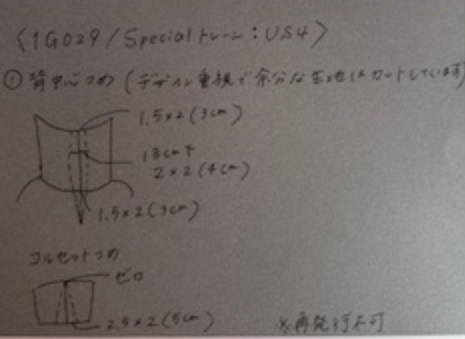 〈1G029/Specialトレーン:US4〉
① 背中心つめ(デザイン重視で余分な生地はカットしています)
1.5×2(3cm)
13cm下
2×2(4cm)
1.5×2(3cm)
コルセットつめ
ゼロ
2.5×2(5cm)
※再発行不可